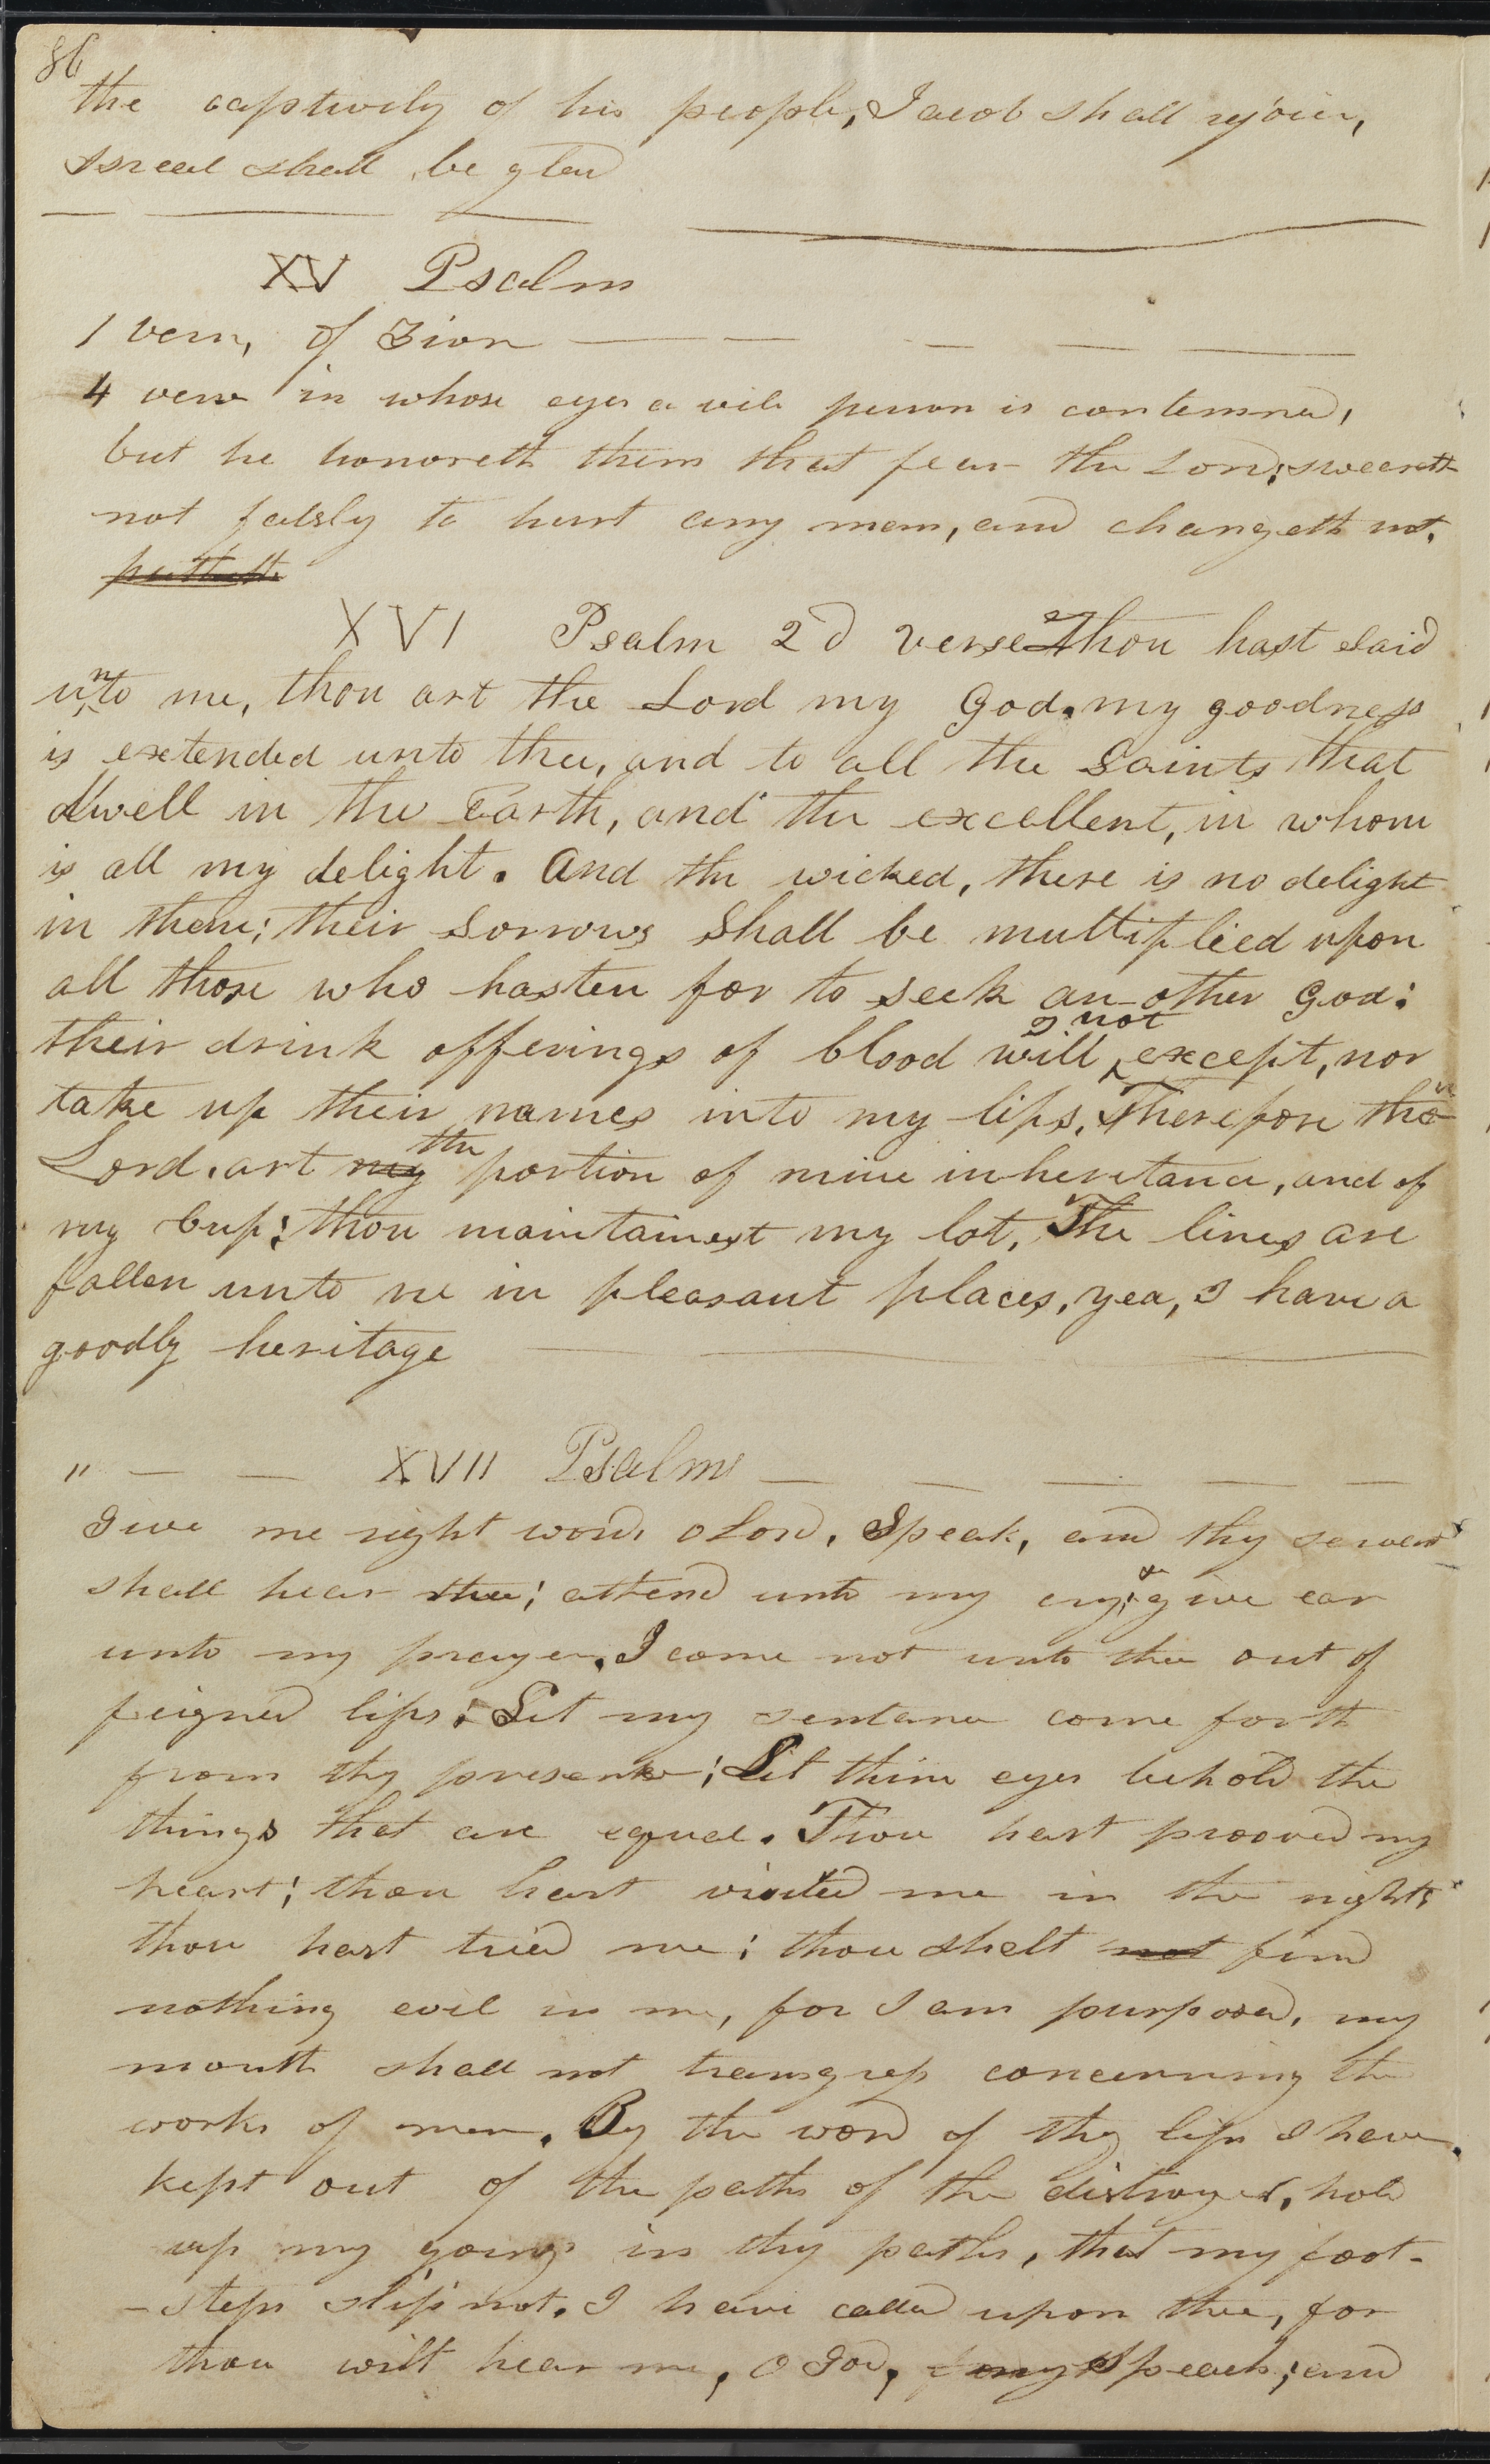 86
the captivity of his people, Jacob shall rejoice,
Isreal shall be glad
XV Psalm
1 vers, of Zion
4 vers in whose eyes a vile person is contemned,
but he honoreth them that fear the Lord; sweareth
not falsly to hurt any man, and changeth not.
putteth
XVI Psalm 2d verse Thou hast said
unto me, thou art the Lord my God. my goodness
is extended unto thee, and to all the Saints that
dwell in the Earth, and the excellent, in whom
is all my delight. And the wicked, there is no delight
in them; their sorrows shall be multiplied upon
all those who hasten for to seek an-other God:
their drink offerings of blood will I not except, nor
take up their names into my lips. Therefore thou
Lord, art my the portion of mine inheritance, and of
my Cup; thou maintainest my lot, The lines are
fallen unto me in pleasant places, yea, I have a
goodly heritage
" XVII Psalms
Give me right words O Lord, Speak, and thy servant
shall hear thee; attend unto my cry; & give ear
unto my prayer. I come not unto thee out of
feigned lips; Let my sentance come forth
from thy presence; Let thine eyes behold the
things that are equal. Thou hast prooved my
heart; thou hast visited me in the night;
thou hast tried me; thou shalt not find
nothing evil in me, for I am purposed, my
mouth shall not transgress concerning the
works of men. By the word of thy lips I have
kept out of the paths of the distroyer, hold
up my goings in thy paths, that my foot-
-steps slip not. I have called upon thee, for
thou wilt hear me, O God, my Speach; and